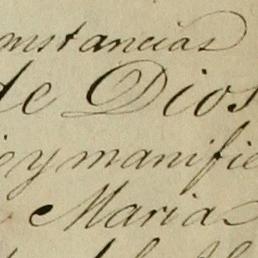 mstancias
de Dios
e y manifie
Maria